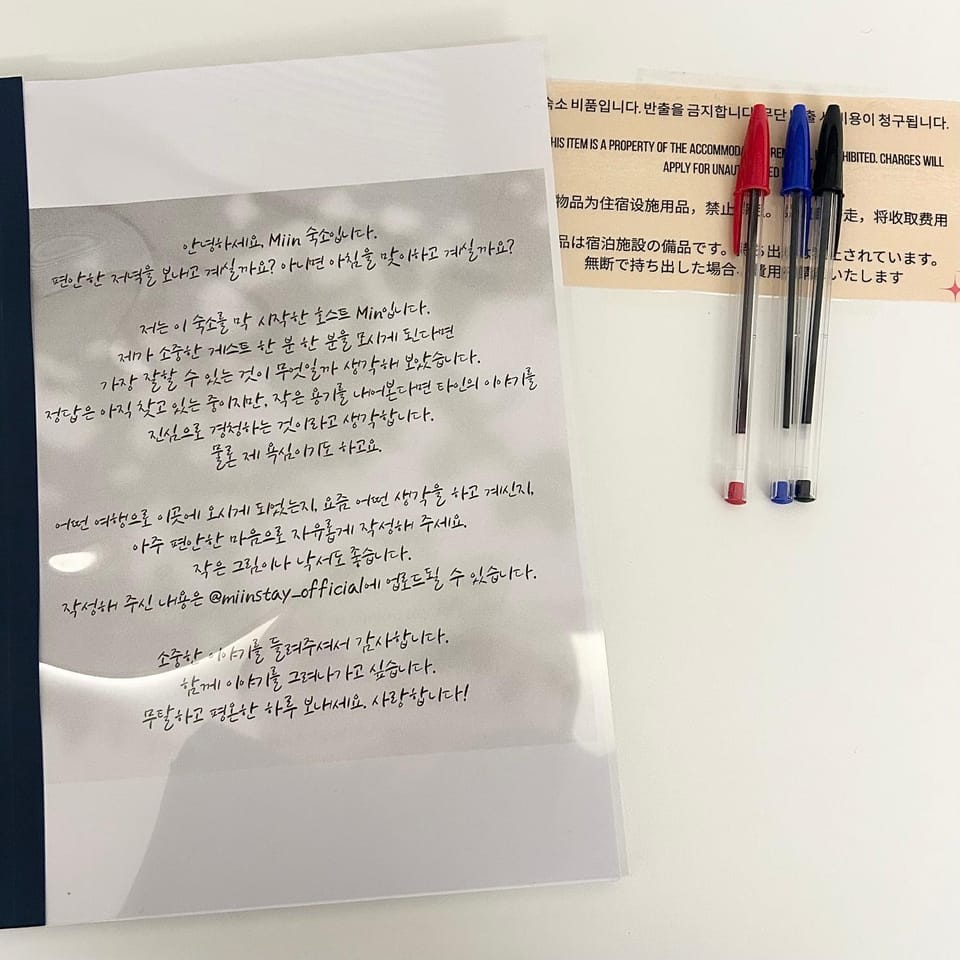 안녕하세요, Miin 숙소입니다.
편안한 저녁을 보내고 계실까요? 아니면 아침을 맞이하고 계실까요?
저는 이 숙소를 막 시작한 호스트 Min입니다.
제가 소중한 게스트 한 분 한 분을 모시게 된다면
가장 잘할 수 있는 것이 무엇일까 생각해 보았습니다.
정답은 아직 찾고 있는 중이지만, 작은 용기를 내어본다면 타인의 이야기를
진심으로 경청하는 것이라고 생각합니다.
물론 제 욕심이기도 하고요.
어떤 여행으로 이곳에 오시게 되었는지, 요즘 어떤 생각을 하고 계신지,
아주 편안한 마음으로 자유롭게 작성해 주세요.
작은 그림이나 낙서도 좋습니다.
작성해 주신 내용은 @miinstay_official에 업로드될 수 있습니다.
소중한 이야기를 들려주셔서 감사합니다.
함께 이야기를 그려나가고 싶습니다.
무탈하고 평온한 하루 보내세요. 사랑합니다!
숙소 비품입니다. 반출을 금지합니다. 비용이 청구됩니다.
THIS ITEM IS A PROPERTY OF THE CHARGES WILL
APPLY FOR
物品为住宿设施用品，禁止 走，将收取费用
品は宿泊施設の備品です。 されています。
無断で持ち出した場合、 いたします